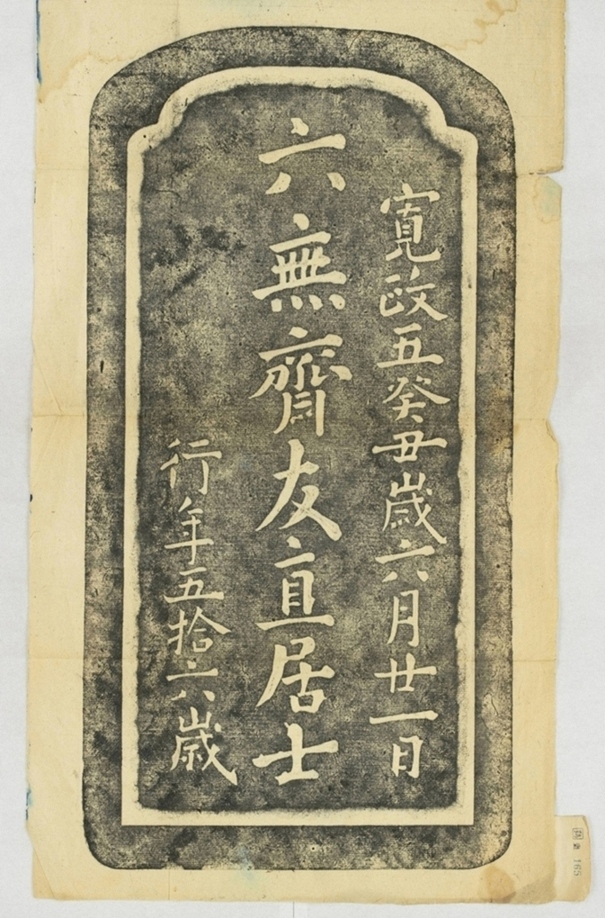 寛政五癸丑歳六月廿一日
六無齋友直居士
行年五拾六歳
165